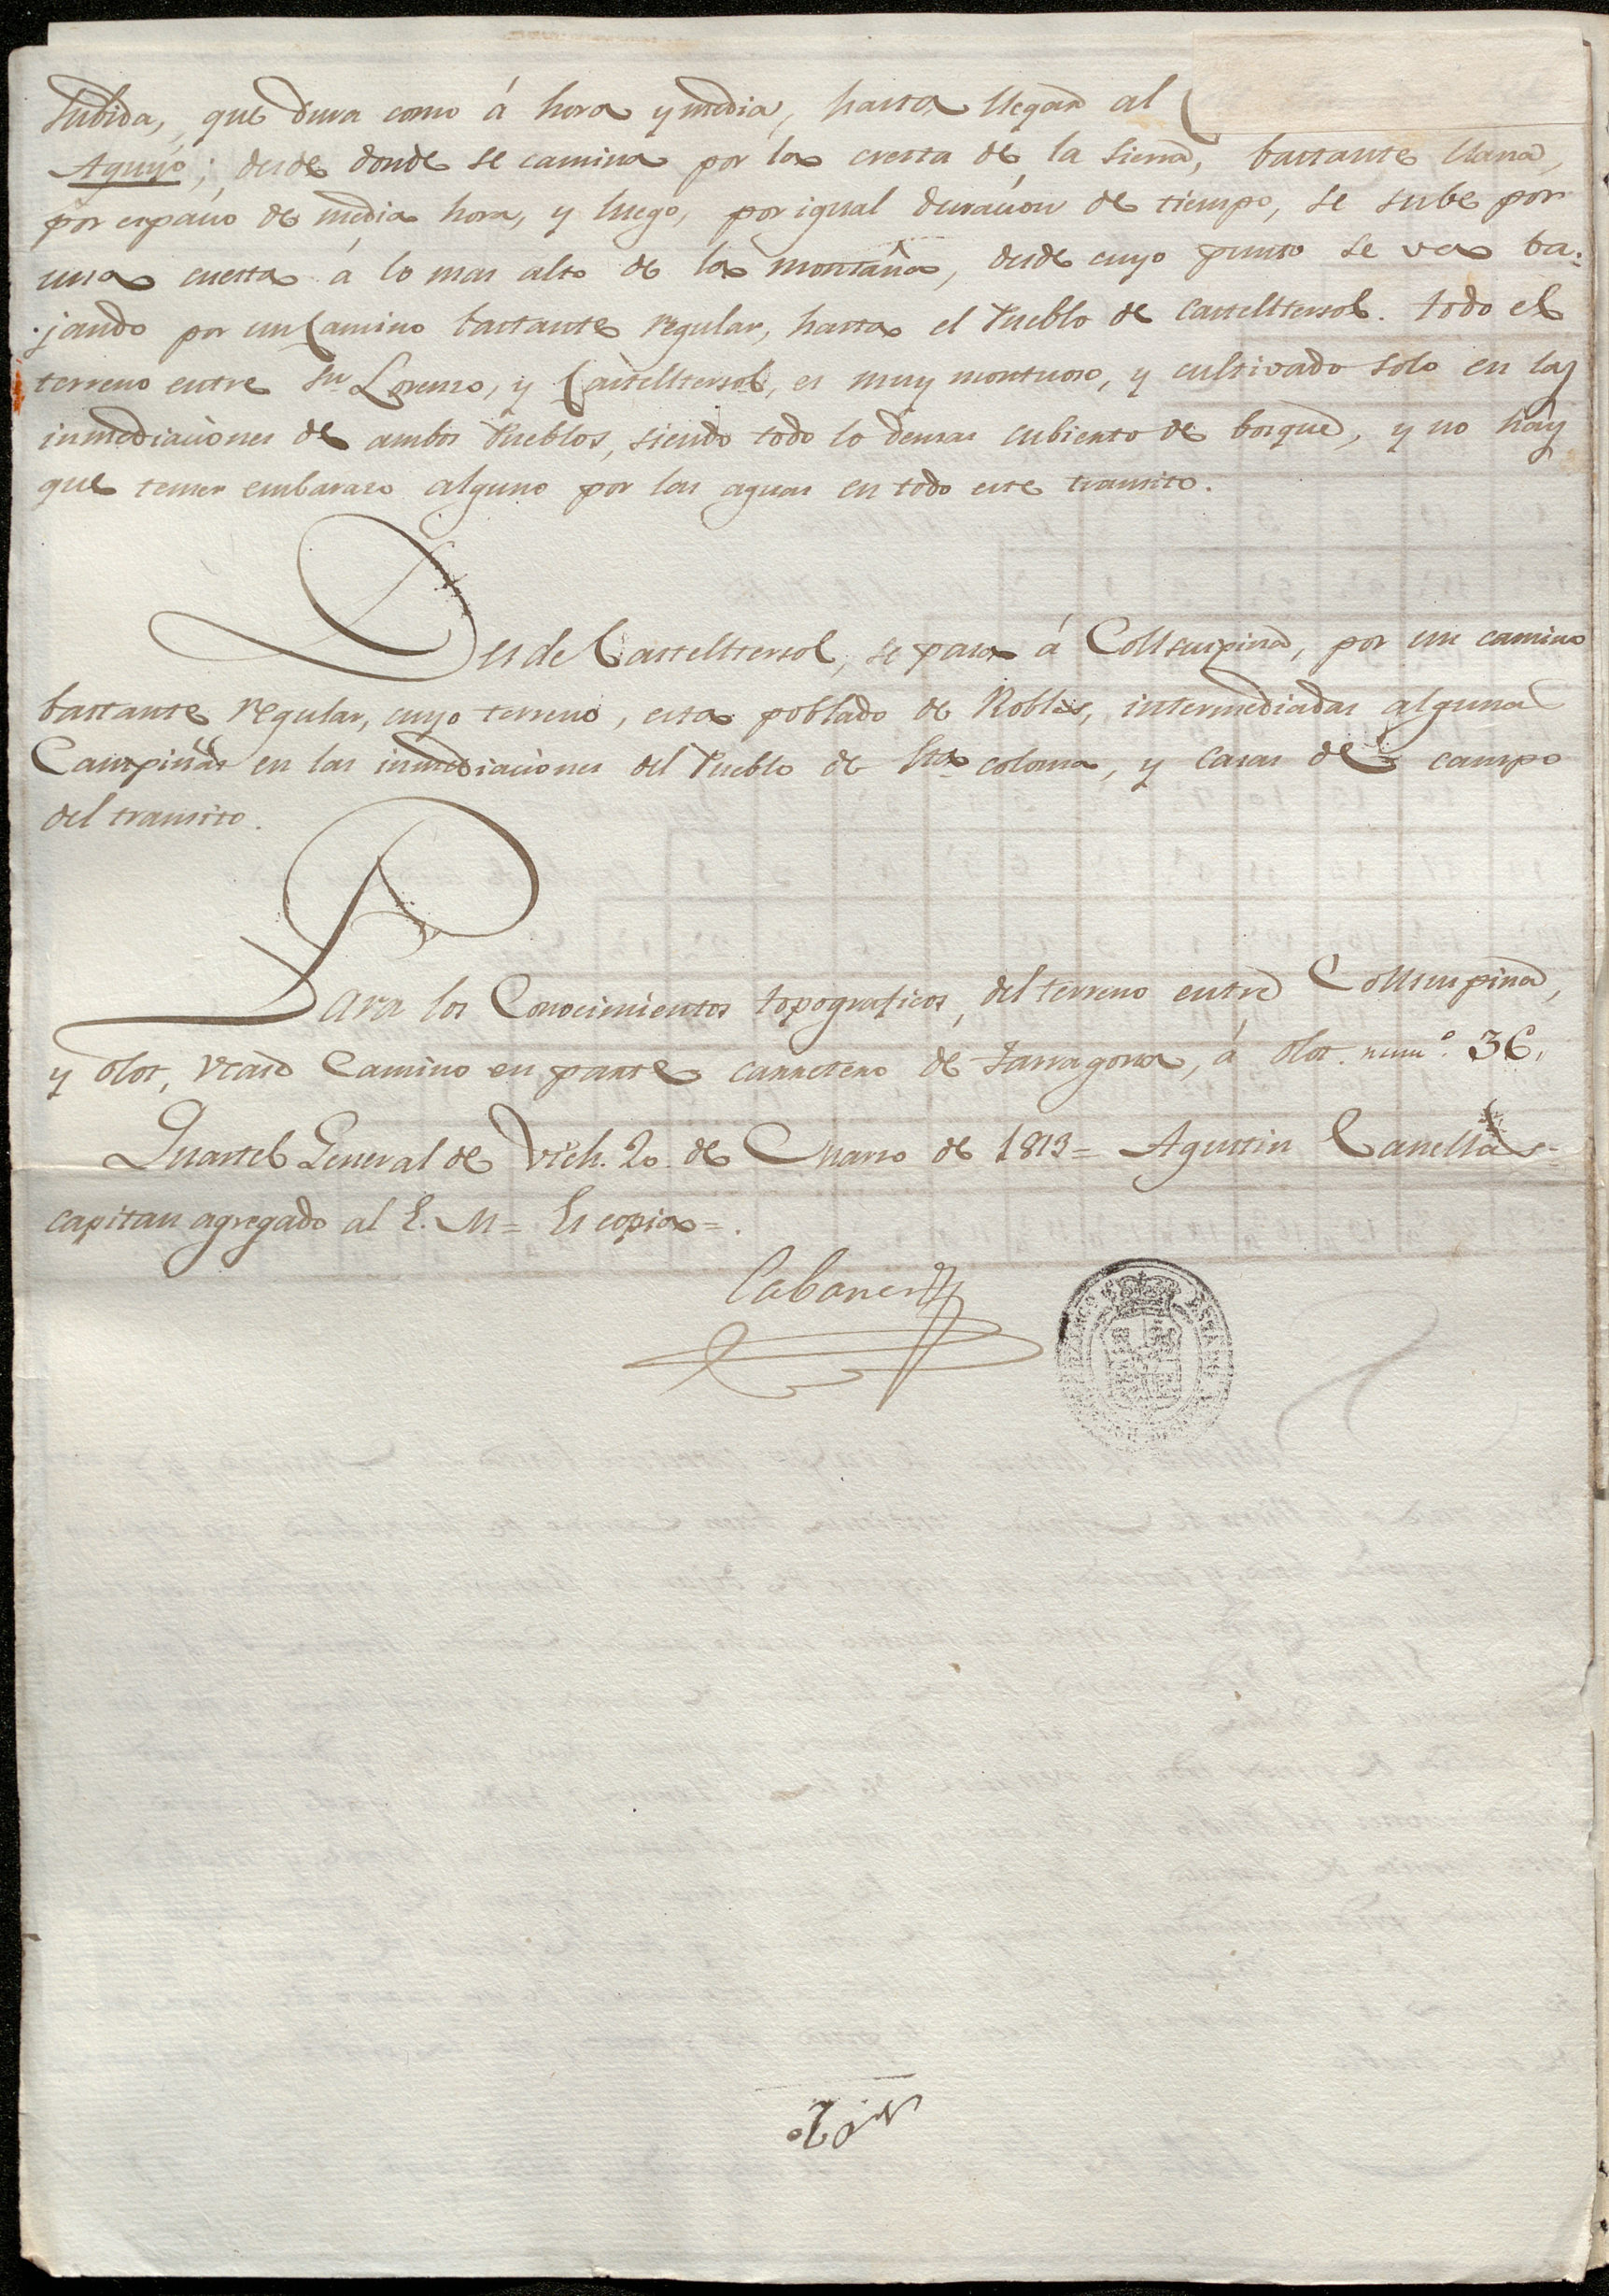 Subida, que dura como á hora y media, hasta llegar al
Aguyó; desde donde se camina por la cresta de la sierra, bastante llana,
por espacio de media hora, y luego, por igual duracion de tiempo, se sube por
una cuesta á lo mas alto de la montaña, desde cuyo punto se va ba-
jando por un Camino bastante regular, hasta el Pueblo de Castelltersol. todo el
terreno entre Sn. Lorenzo, y Castelltersol, es muy montuoso, y cultivado solo en las
inmediaciones de ambos Pueblos, siendo todo lo demas cubierto de bosque, y no hay
que temer embarazo alguno por las aguas en todo este transito.
Desde Castelltersol, se pasa á Collsuspina, por un camino
bastante regular, cuyo terreno, esta poblado de Robles, intermediadas algunas
Campiñas en las inmediaciones del Pueblo de Sta. coloma, y casas de campo
del transito.
Para los Conocimientos topograficos, del terreno entre Collsuspina,
y Olot, vease Camino en parte carretero de Tarragona, á Olot. numo. 36.
Quartel General de Vich. 20. de Marzo de 1813= Agustin Canellas=
capitan agregado al E. M= Es copia=.
Cabanes